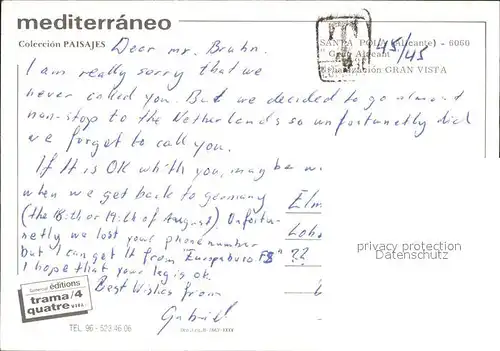 mediterráneo
Colección PAISAJES
SANTA POLA (Alicante) - 6060
"Gran Alacant"
Urbanización GRAN VISTA
T
45/45
Dear mr. Bruhn.
I am really sorry that we
never called you. But we decided to go almost
non-stop to the Netherlands so unfortunetly did
we forget to call you.
If It is OK whith you, may be w
when we get back to germany
(the 18:th or 19:th of August). Unfortu-
netly we lost your phonenumber
but I can get it from "Europabüro FS"
I hope that your leg is ok.
Best Wishes from
Gabriel
Elm
Lohe
??
privacy protection
Datenschutz
éditions
trama/4
quatre
TEL. 96 - 523 46 06